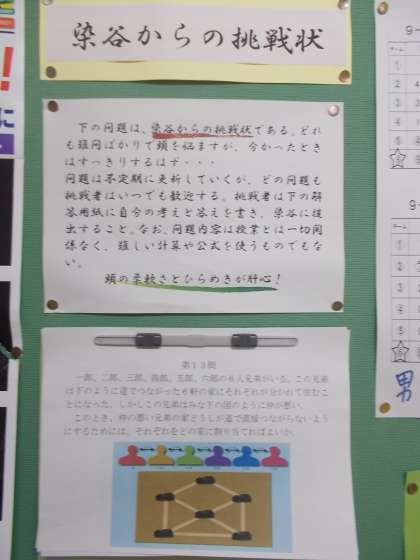 染谷からの挑戦状
下の問題は、染谷からの挑戦状である。どれ
も難問ばかりで頭を悩ますが、分かったとき
はすっきりするはず・・・
問題は不定期に更新していくが、どの問題も
挑戦者はいつでも歓迎する。挑戦者は下の解
答用紙に自分の考えと答えを書き、染谷に提
出すること。なお、問題内容は授業とは一切関
係なく、難しい計算や公式を使うものでもな
い。
頭の柔軟さとひらめきが肝心！
第１３問
一郎、二郎、三郎、四郎、五郎、六郎の６人兄弟がいる。この兄弟
は下のように道でつながった６軒の家にそれぞれが分かれて住むこ
とになった。しかしこの兄弟はみな下の図のように仲が悪い。
このとき、仲の悪い兄弟の家どうしが道で直接つながらないよう
にするためには、それぞれをどの家に割り当てればよいか。
9-
チーム
①
②
③
④
⑤
⑥
9-
チーム
①
②
③
④
⑤
男